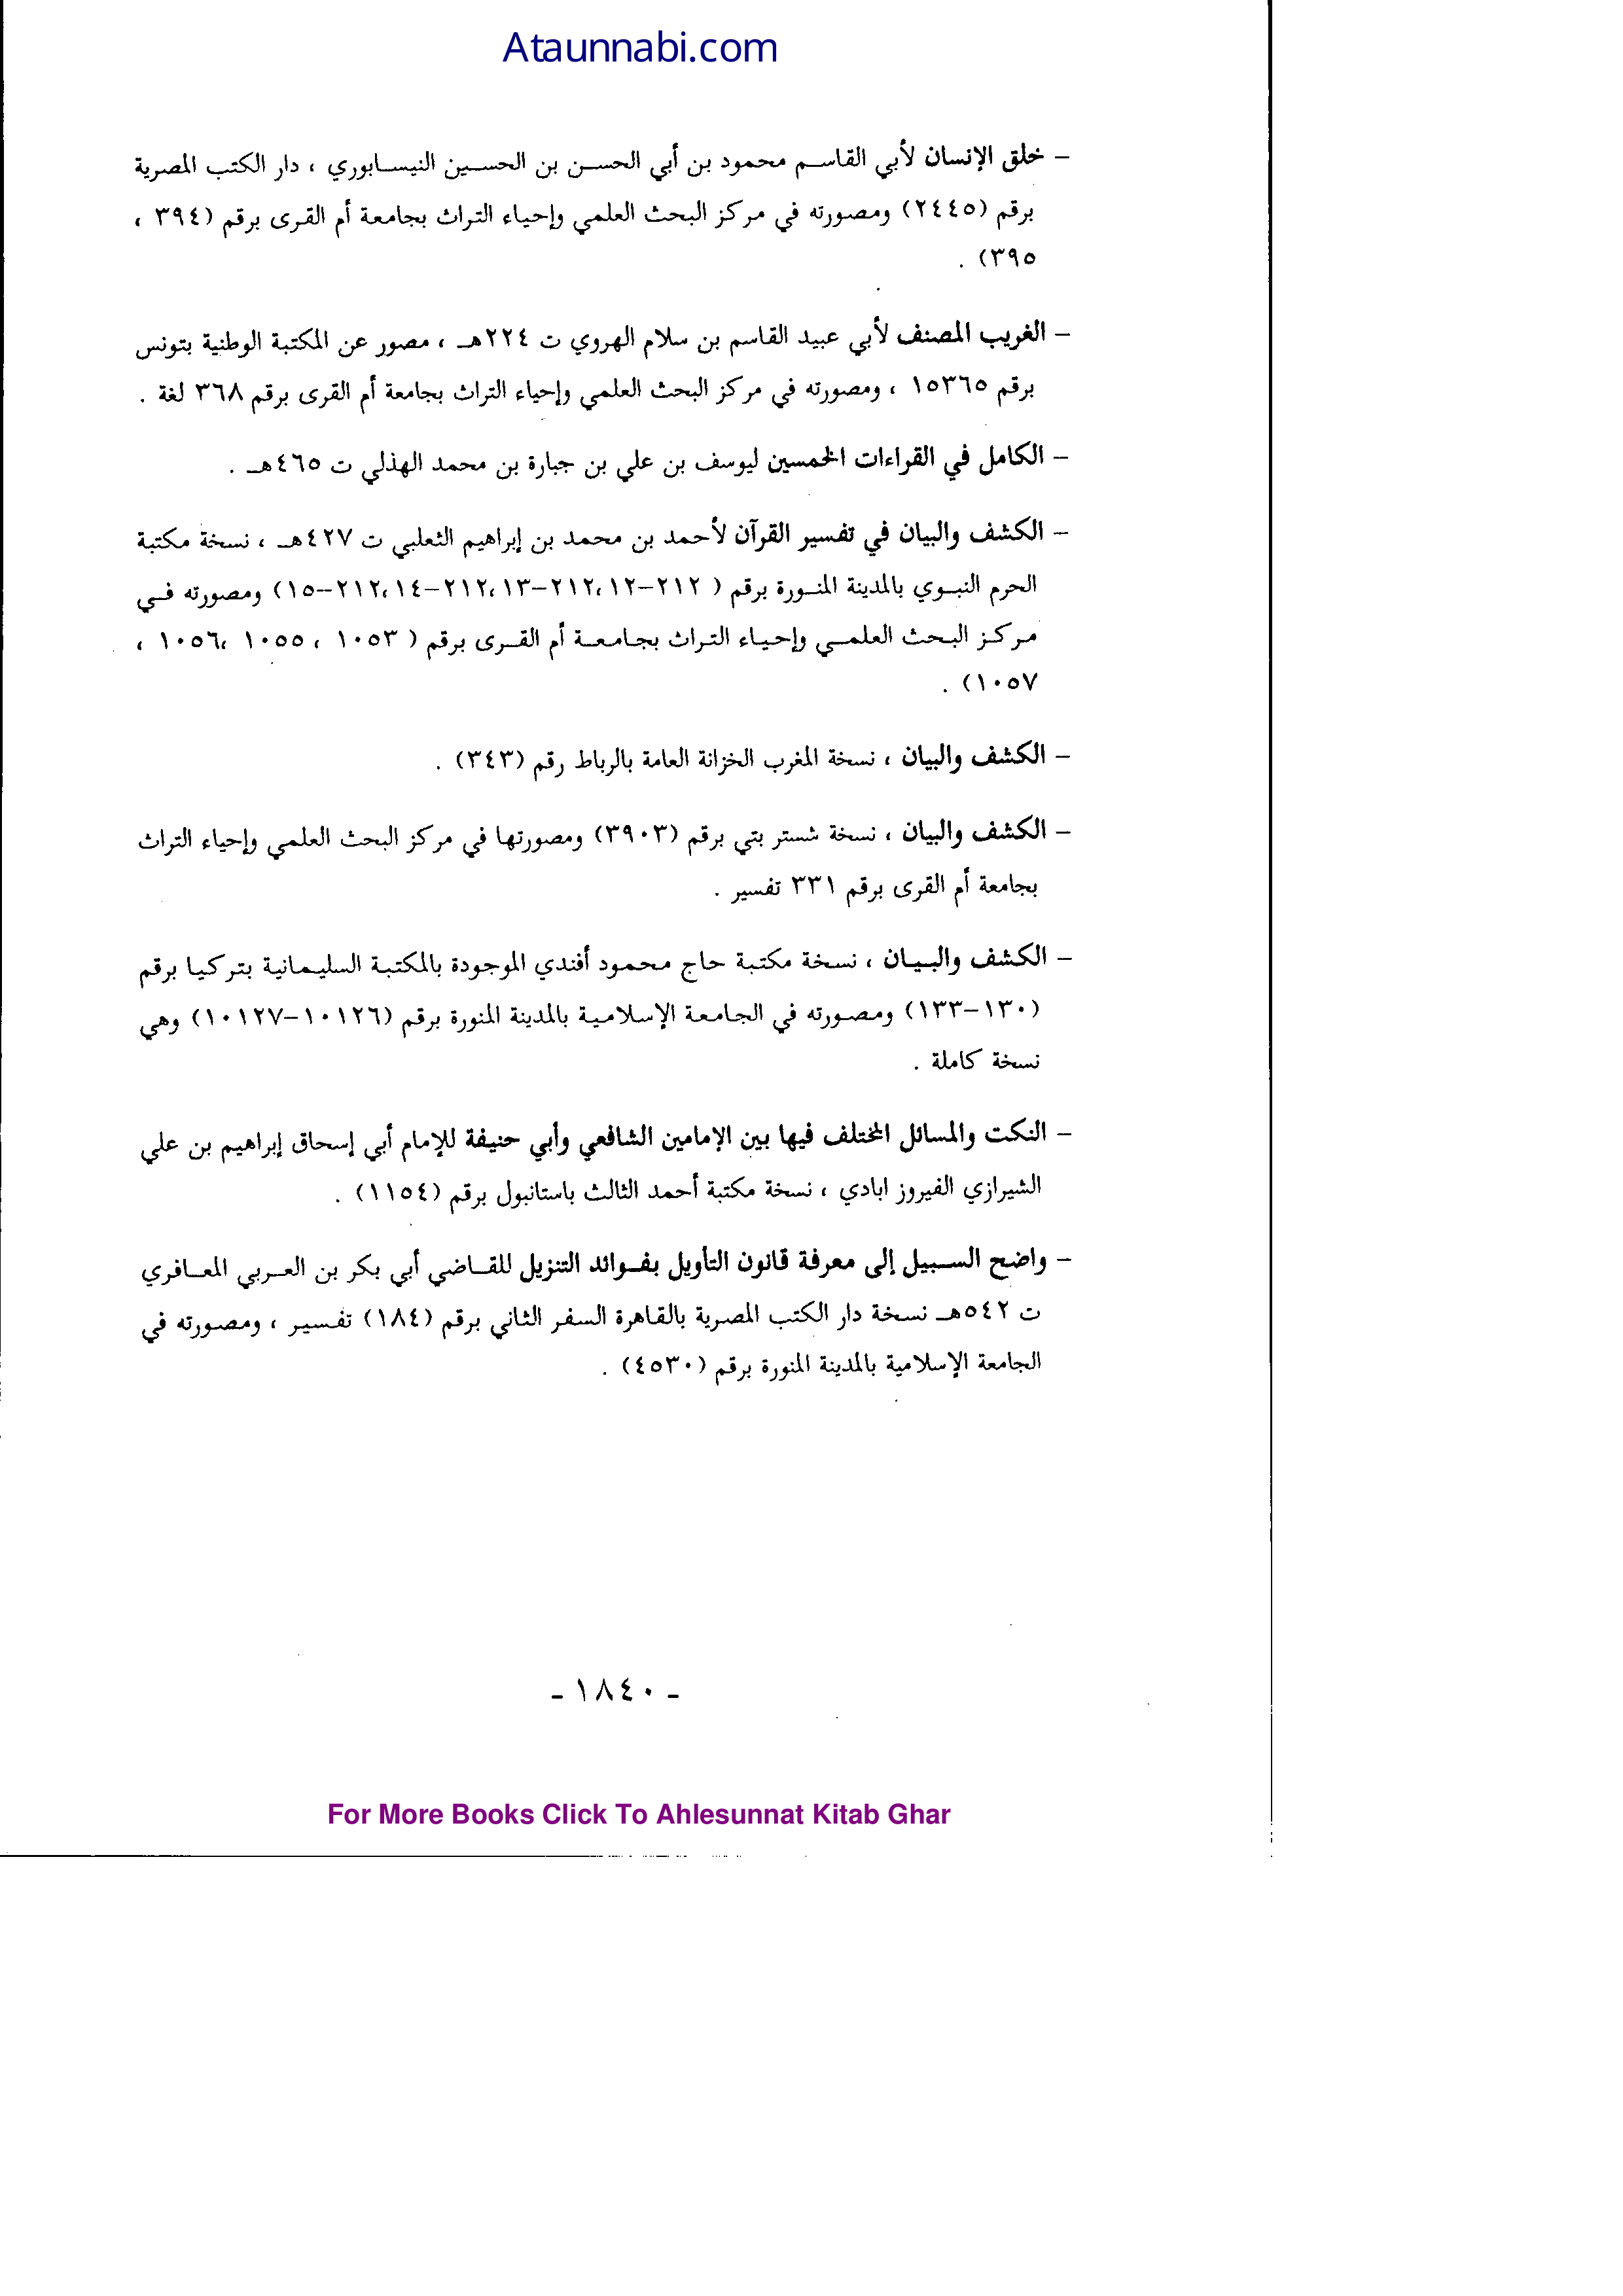 Ataunnabi.com
– خلق الإنسان لأبي القاسم محمود بن أبي الحسن بن الحسين النيسابوري ، دار الكتب المصرية
برقم (٢٤٤٥) ومصورته في مركز البحث العلمي وإحياء التراث بجامعة أم القرى برقم (٣٩٤ ،
٣٩٥) .
– الغريب المصنف لأبي عبيد القاسم بن سلام الهروي ت ٢٢٤هـ ، مصور عن المكتبة الوطنية بتونس
برقم ١٥٣٦٥ ، ومصورته في مركز البحث العلمي وإحياء التراث بجامعة أم القرى برقم ٣٦٨ لغة .
– الكامل في القراءات الخمسين ليوسف بن علي بن جبارة بن محمد الهذلي ت ٤٦٥هـ .
– الكشف والبيان في تفسير القرآن لأحمد بن محمد بن إبراهيم الثعلبي ت ٤٢٧هـ ، نسخة مكتبة
الحرم النبوي بالمدينة المنورة برقم ( ٢١٢–١٢،٢١٢–١٣،٢١٢–١٤،٢١٢–١٥) ومصورته في
مركز البحث العلمي وإحياء التراث بجامعة أم القرى برقم ( ١٠٥٣ ، ١٠٥٥ ،١٠٥٦ ،
١٠٥٧) .
– الكشف والبيان ، نسخة المغرب الخزانة العامة بالرباط رقم (٣٤٣) .
– الكشف والبيان ، نسخة شستر بتي برقم (٣٩٠٣) ومصورتها في مركز البحث العلمي وإحياء التراث
بجامعة أم القرى برقم ٣٣١ تفسير .
– الكشف والبيان ، نسخة مكتبة حاج محمود أفندي الموجودة بالمكتبة السليمانية بتركيا برقم
(١٣٠–١٣٣) ومصورته في الجامعة الإسلامية بالمدينة المنورة برقم (١٠١٢٦–١٠١٢٧) وهي
نسخة كاملة .
– النكت والمسائل المختلف فيها بين الإمامين الشافعي وأبي حنيفة للإمام أبي إسحاق إبراهيم بن علي
الشيرازي الفيروز ابادي ، نسخة مكتبة أحمد الثالث باستانبول برقم (١١٥٤) .
– واضح السبيل إلى معرفة قانون التأويل بفوائد التنزيل للقاضي أبي بكر بن العربي المعافري
ت ٥٤٢هـ نسخة دار الكتب المصرية بالقاهرة السفر الثاني برقم (١٨٤) تفسير ، ومصورته في
الجامعة الإسلامية بالمدينة المنورة برقم (٤٥٣٠) .
- ١٨٤٠ -
For More Books Click To Ahlesunnat Kitab Ghar